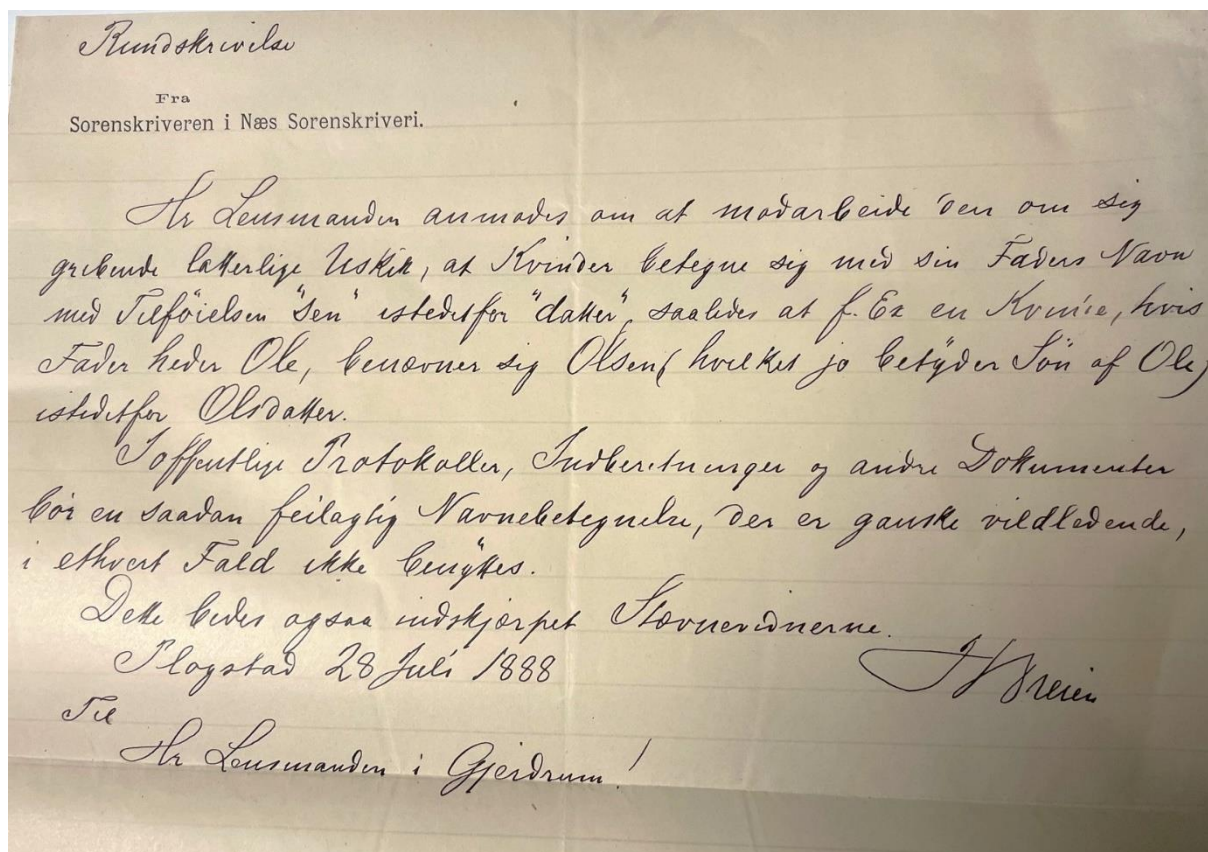 Rundskrivelse
Fra
Sorenskriveren i Næs Sorenskriveri.
Hr Lensmanden anmodes om at modarbeide den om sig
gribende latterlige Uskik, at Kvinder betegne sig med sin Faders Navn
med Tilföielsen "sen" istedetfor "datter", saaledes at f. Ex en Kvinde, hvis
Fader heder Ole, benævner sig Olsen (hvilket jo betyder Sön af Ole)
istedetfor Olsdatter.
I offentlige Protokoller, Indberetninger og andre Dokumenter
bör en saadan feilagtig Navnebetegnelse, der er ganske vildledende,
i ethvert Fald ikke benyttes.
Dette bedes ogsaa indskjærpet Stævnevidnerne.
Plogstad 28 Juli 1888
Til
Hr Lensmanden i Gjerdrum!